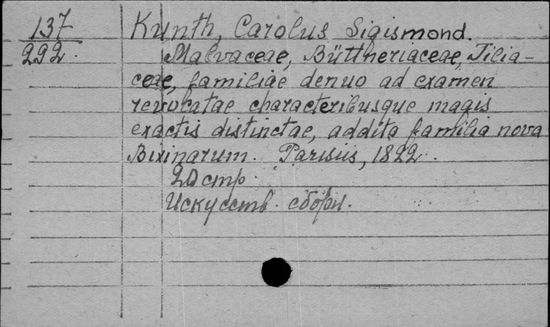 137 Kunth, Carolus Sigismond.
292. Malvaceae, Büttneriaceae, Tilia-
ceae, familiae denuo ad examen
revocatae characteribusque magis
exactis distinctae, addita familia nova
Bixinarum. Parisiis, 1822.
20 стр.
Искусств. сборн.